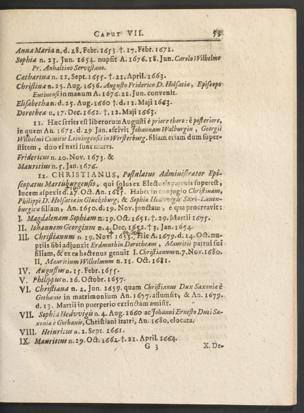 CAPUT VII. 53
Anna Maria n. d. 28. Febr. 1653. †. 17. Febr. 1671.
Sophia n. 23. Jun. 1654. nupsit A. 1676. 18. Jun. Carolo Wilhelmo
Pr. Anhaltino Servestano.
Catharina n. 12. Sept. 1655. †. 21. April. 1663.
Christina n. 25. Aug. 1656. Augusto Friderico D. Holsatiæ, Episcopo
Eutinensi in manum A. 1676. 21. Jun. convenit.
Elisabetha n. d. 25. Aug. 1660. † d. 11. Maji 1663.
Dorothea n. 17. Dec. 1662. †. 12. Maji 1663.
II. Hac series est liberorum Augusti è priore thoro: è posteriore,
in quem An. 1672. d. 29 Jan. ascivit Johannam Walburgin, Georgii
Wilhelmi Comitis Leiningensis in Westerburg. filiam etiam dum super-
stitem, duo ei nati sunt nati:
Fridericus n. 20. Nov. 1673. &
Mauritius n. 5. Jan. 1676.
12. CHRISTIANUS, Postulatus Administrator Epi-
scopatus Martisburgensis, qui soboles Electoris parentis superest,
lucem aspexit d. 27. Oct. An. 1615. Hic ex conjugio Christianam,
Philippi D. Holsatiæ in Glücksburg, & Sophiæ Hedwigis Saxo-Lauen-
burgicæ filiam, An. 1650. d. 19. Nov. junctam, ea procreavit:
I. Magdalenam Sophiam n. 19. Oct. 1651. †. 29. Martii 1675.
II. Johannem Georgium n. 4. Dec. 1652. †. 3. Jan. 1654.
III. Christianum n. 19. Nov. 1653. Hic A. 1679. d. 14. Oct. nu-
ptiis sibi adjunxit Erdmuthin Dorotheam, Mauritii patrui sui
filiam, & ex ea hactenus genuit I. Christianum n. 7. Nov. 1680.
II. Mauritium Wilhelmum n. 25. Oct. 1681.
IV. Augustus n. 15. Febr. 1655.
V. Philippus n. 26. Octobr. 1657.
VI. Christiana n. 2. Jun. 1659. quam Christianus Dux Saxoniæ è
Gothanis in matrimonium An. 1677. assumsit, & An. 1679.
d. 13. Martii in puerperio exstinctam amisit.
VII. Sophia Hedwigis n. 4. Aug. 1660 ac Johanni Ernesto Duci Sa-
xoniæ è Gothanis, Christiani fratri, An. 1680. elocata.
VIII. Heinricus n. 2. Sept. 1661.
IX. Mauritius n. 29. Oct. 1662. †. 21. April. 1664.
G 3 X. De-